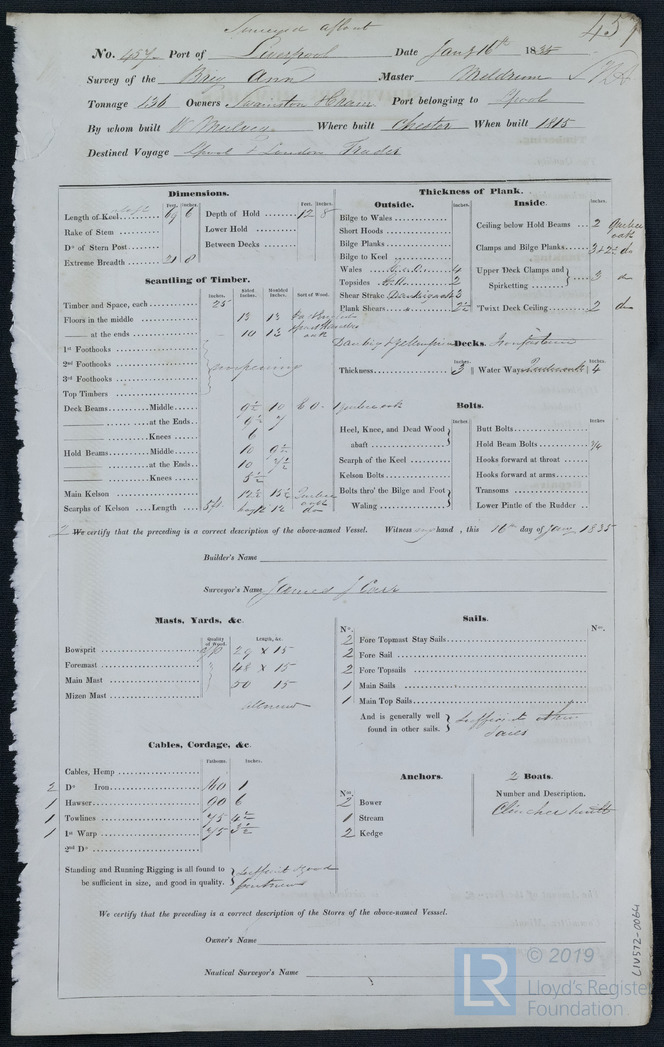 Surveyed afloat
457
No. 457 Port of Liverpool Date Jany 16th 1835
Survey of the Brig Ann Master Meldrum
Tonnage 136 Owners Swainston & Port belonging to Lpool
By whom built W Mulvey Where built Chester When built 1815
Destined Voyage Lpool & London Trader
Dimensions.
Feet. Inches.
Length of Keel 69 6
Rake of Stem
Do of Stern Post
Extreme Breadth 21 8
Feet. Inches.
Depth of Hold 12 8
Lower Hold
Between Decks
Scantling of Timber.
Inches. Sided Inches. Moulded Inches. Sort of Wood.
Timber and Space, each 25
Floors in the middle 13 13
—— at the ends 10 13 oak
1st Foothooks
2nd Foothooks
3rd Foothooks
Top Timbers
no opening
Deck Beams Middle 9½ 10
—— at the Ends 9½ 7
—— Knees 6
Hold Beams Middle 10 9½
—— at the Ends 10 7½
—— Knees 5½
Main Kelson 12½ 15½ Quebec oak
Scarphs of Kelson Length 5/4 12 do
Thickness of Plank.
Outside.
Inches.
Bilge to Wales
Short Hoods
Bilge Planks
Bilge to Keel
Wales 4
Topsides 2
Shear Strake 3
Plank Shears 2½
Inside.
Inches.
Ceiling below Hold Beams 2 Quebec oak
Clamps and Bilge Planks 3 & 2½ do
Upper Deck Clamps and Spirketting 3 do
'Twixt Deck Ceiling 2 do
Dantzig & Yellow pine Decks. Iron fastened
Thickness Inches. 3 Water Ways Inches. 4
Bolts.
Inches
Heel, Knee, and Dead Wood abaft
Scarph of the Keel
Kelson Bolts
Bolts thro' the Bilge and Foot Waling
Inches
Butt Bolts
Hold Beam Bolts 3/4
Hooks forward at throat
Hooks forward at arms
Transoms
Lower Pintle of the Rudder
I We certify that the preceding is a correct description of the above-named Vessel. Witness my hand, this 16th day of Jany 1835
Builder's Name
Surveyor's Name James J Carr
Masts, Yards, &c.
Quality of Wood. Length, &c.
Bowsprit 29 × 15
Foremast 48 × 15
Main Mast 50 15
Mizen Mast
all new
Sails.
No. Nos.
2 Fore Topmast Stay Sails
2 Fore Sail
2 Fore Topsails
1 Main Sails
1 Main Top Sails
And is generally well found in other sails. Sufficient other Sails
Cables, Cordage, &c.
Fathoms. Inches.
Cables, Hemp
2 Do Iron 160 1
1 Hawser 90 6
1 Towlines 75 4½
1 1st Warp 75 3½
2nd Do
Standing and Running Rigging is all found to be sufficient in size, and good in quality. Sufficient & good
Anchors.
Nos.
2 Bower
1 Stream
2 Kedge
2 Boats.
Number and Description.
Clincher built
We certify that the preceding is a correct description of the Stores of the above-named Vesssel.
Owner's Name
Nautical Surveyor's Name
LIV572-0064
LR
© 2019
Lloyd's Register
Foundation